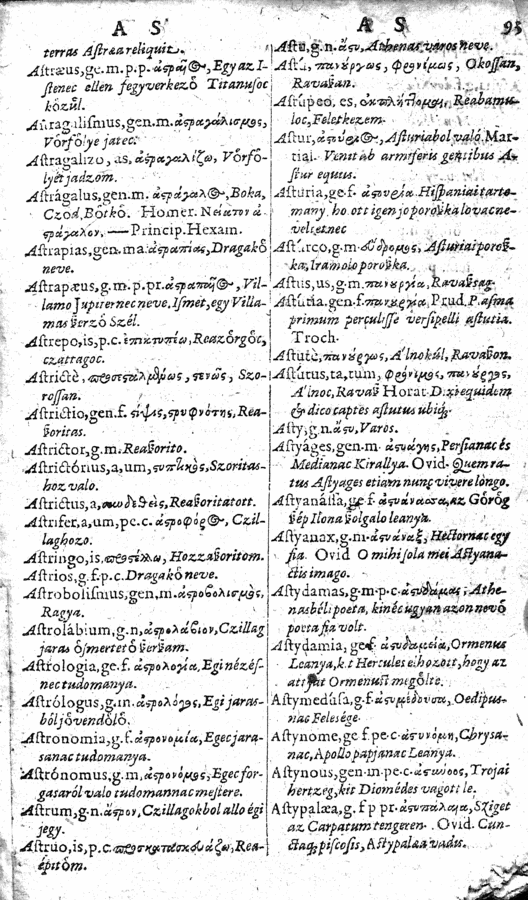 A S
terras Astræa reliquit.
Astræus, ge. m. p. p. ἀςραῖος, Egy az I-
stenec ellen fegyverkezö Titanusoc
közül.
Astragalismus, gen. m. ἀςραγαλισμος,
Vörfölye jatec.
Astragalizo, as, ἀςραγαλίζω, Vörfö-
lyèt jadzom.
Astrágalus, gen. m. ἀςράγαλος, Boka,
Czod, Botkó. Homer.
ςράγαλον, — Princip. Hexam.
Astrapias, gen. ma. ἀςραπίας, Dragakö
neve.
Astrapæus, g. m. p. pr. ἀςραπαῖος, Vil-
lamo Jupiternec neve. Ismét, egy Villa-
mas ßerzö Szél.
Astrepo, is, p. c. ἐπικτυπέω, Reazörgöc,
czattagoc.
Astrictè, Szo-
rossan.
Astrictio, gen. f. ςρυφνότης, Rea-
ßoritas.
Astrictor, g. m. Reaßorito.
Astrictórius, a, um, ςυπτικὸς, Szoritas-
hoz valo.
Astrictus, a, συνδεθεὶς, Reaßoritatott.
Astrifer, a, um, pe. c. ἀςροφόρος, Czil-
laghozo.
Astringo, is, Hozzaßoritom.
Astrios, g. f. p. c. Dragakö neve.
Astrobolismus, gen, m. ἀςροβολισμὸς,
Ragya.
Astrolábium, g. n, ἀςρολάβιον, Czillag
jaras ösmertetö ßerßam.
Astrologia, ge. f. ἀςρολογία, Egi nézés-
nec tudomanya.
Astrólogus, g. m. ἀςρολόγος, Egi jaras-
ból jövendölö.
Astronomia, g. f. ἀςρονομία, Egec jara-
sanac tudomanya.
Astrónomus, g. m, ἀςρονόμος, Egec for-
gasaról valo tudomannac mestere.
Astrum, g. n. ἄςρον, Czillagokbol allo égi
jegy.
Astruo, is, p. c. προσκατασκευάζω, Rea-
épitöm.
A S 95
Astu, g. n. ἄςυ, Athenas varos neve.
Astu, πανούργως, φρονίμως, Okossan,
Ravaßan.
Astupeo, es, ἐκπλήττομαι, Reabamu-
loc, Feletkezem.
Astur, Asturiabol való. Mar-
tial. Venit ab armiferis gentibus A-
stur equus.
Asturia, ge. f. ἀςουρία. Hispaniai tarto-
many, ho ott igen jo poroßka lovac ne-
veltetnec
Asturco, g. m. Asturiai poroß-
ka, Iramoio poroßka.
Astus, us, g. m. πανουργία, Ravaßsag.
Astutia, gen. f. πανουργία, Prud. Pasma
primum perculisse versipelli astutia.
Troch.
Astutè, πανούργως, Alnokúl, Ravaßon.
Astútus, ta, tum, φρόνιμος, πανοῦργος,
Alnoc, Ravaß Horat. Dixi equidem
& dico captes astutus ubiq;
Asty, g. n. ἄςυ, Varos.
Astyages, gen. m. ἀςυάγης, Persianac és
Medianac Kirallya. Ovid. Quem ra-
tus Astyages etiam nunc vivere longo.
Astyanássa, ge f. ἀςυάνασσα, az Görög
ßép Ilona ßolgalo leanya.
Astyanax, g. m. ἀςυάναξ, Hectornac egy
fia. Ovid O mihi sola mei Astyana-
ctis imago.
Astydamas, g. m. p. c. ἀςυδάμας, Athe-
nasbéli poeta, kinéc ugyan azon nevö
poeta fia volt.
Astydamia, ge f. ἀςυδαμεία, Ormenus
Leanya, k. t Hercules el hozott, hogy az
attyat Ormenust megölte.
Astymedúsa, g. f. ἀςυμέδουσα, Oedipus-
nac Felesége.
Astynome, ge f. pe c. ἀςυνόμη, Chrysa-
nac, Apollo papjanac Leanya.
Astynous, gen. m pe c. ἀςύνοος, Trojai
hertzeg, kit Diomédes vagott le.
Astypalæa, g. f p pr. ἀςυπάλαια, Sziget
az Carpatum tengeren. Ovid. Cun-
ctaq; piscosis, Astypalæa vadis.